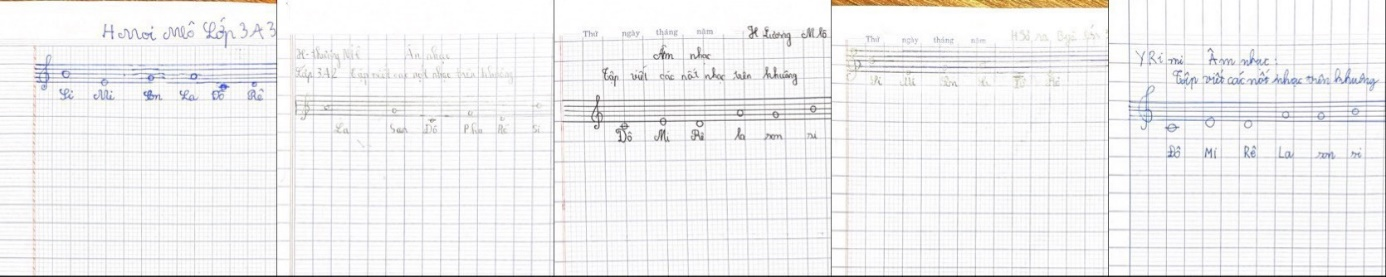 H Moi Mlô Lớp 3A3
Si Mi Son La Đô Rê
Âm nhạc
Lớp 3A2 Tập viết các nốt nhạc trên khuông
La Son Đô Pha Rê Si
Thứ ngày tháng năm H Lương Mlô
Âm nhạc
Tập viết các nốt nhạc trên khuông
Đô Mi Rê la son si
Thứ ngày tháng năm
Si Mi Son Đô Rê
Y Ri mi Âm nhạc:
Tập viết các nốt nhạc trên khuông
Đô Mi Rê La son si